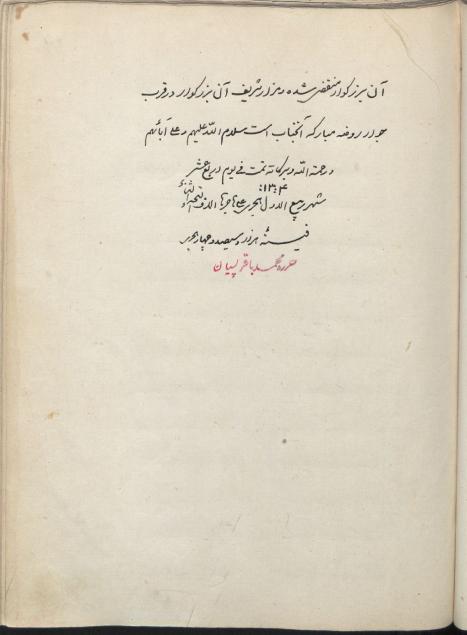 آن بزرگوار منقضی شده و مزار شریف آن بزرگوار در قرب
جوار روضه مبارکه آنجناب است سلام الله علیهم و علی آبائهم
و رحمة الله و برکاته تمت فی یوم رابع عشر
۱۳۰۴
شهر ربیع الاول هجری علی هاجرها الاف التحیة و الثناء
فی سنه هزار و سیصد و چهار هجری
حرره محمد باقر